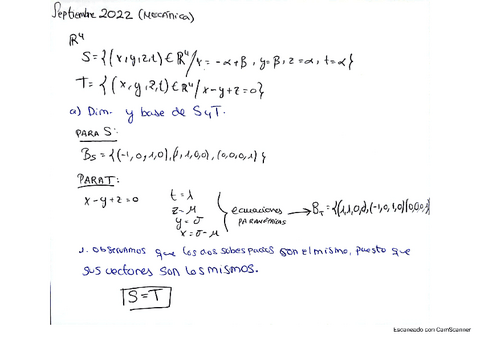 Septiembre 2022 (MECÁNICA)
ℝ⁴
S = {(x,y,z,t) ∈ ℝ⁴ / x = -α+β, y=β, z=α, t=α}
T = {(x,y,z,t) ∈ ℝ⁴ / x-y+z=0}
a) Dim. y base de S y T.
PARA S:
B_S = {(-1,0,1,0), (1,1,0,0), (0,0,0,1)}
PARA T:
x-y+z=0
t=λ
z=μ
y=σ
x=σ-μ
ecuaciones
PARAMÉTRICAS
→ B_T = {(1,1,0,0), (-1,0,1,0)(0,0,0,1)}
Observamos que los dos subespacios son el mismo, puesto que
sus vectores son los mismos.
S=T
Escaneado con CamScanner